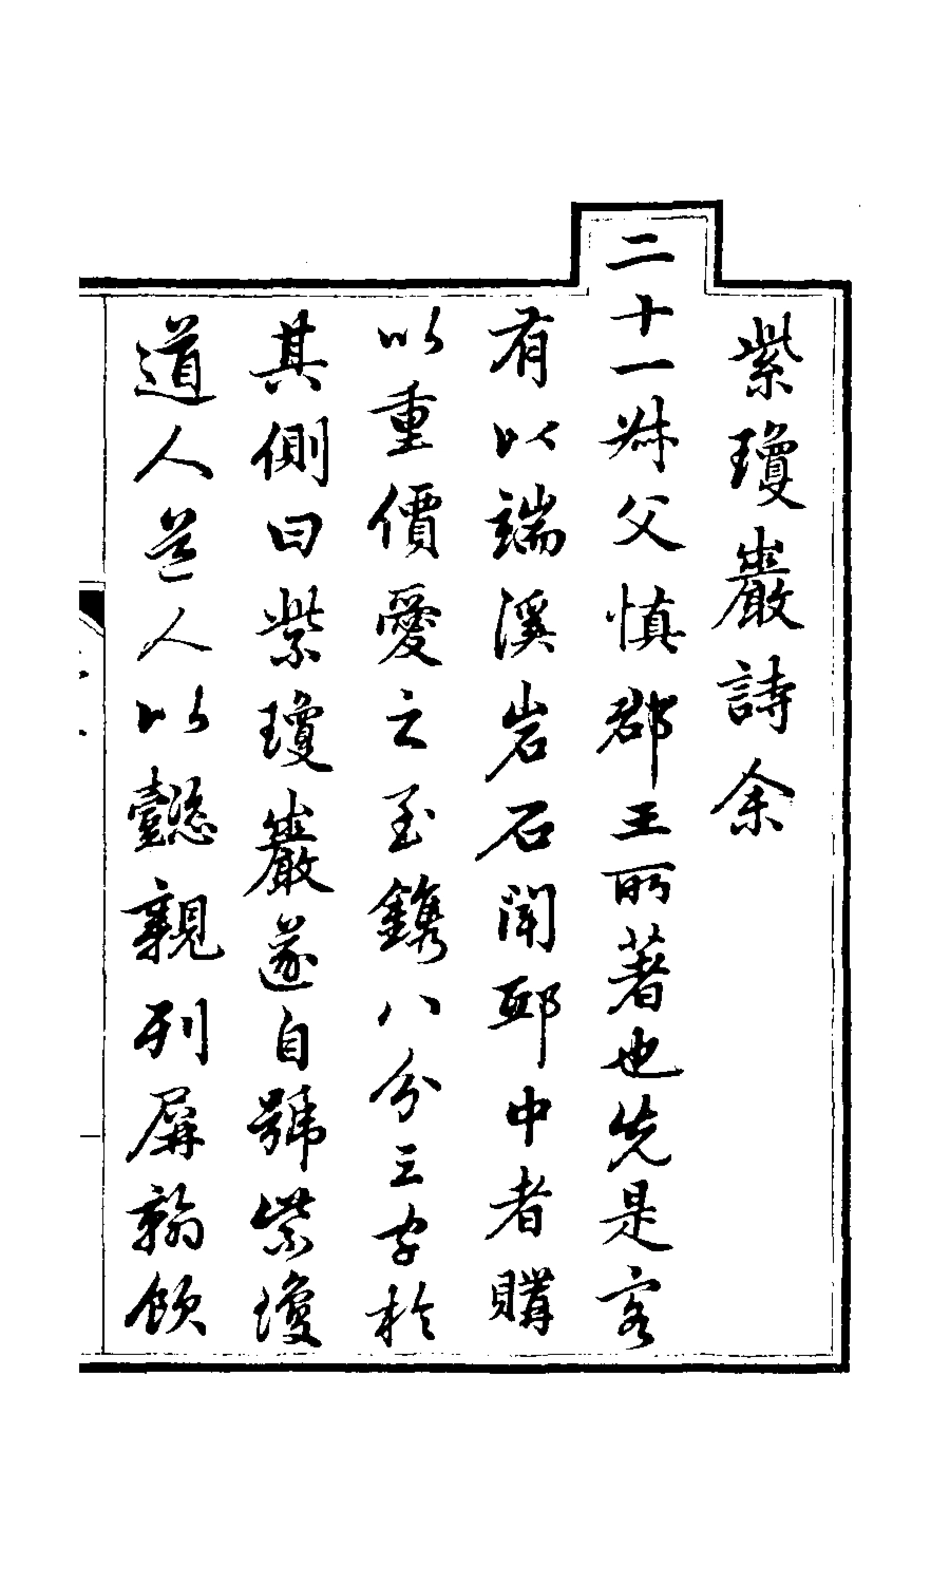 紫瓊巖詩余
二十一叔父慎郡王所著也先是客
有以端溪岩石聞邸中者購
以重價愛之至鐫八分三字於
其側曰紫瓊巖遂自號紫瓊
道人道人以懿親列屏翰飲